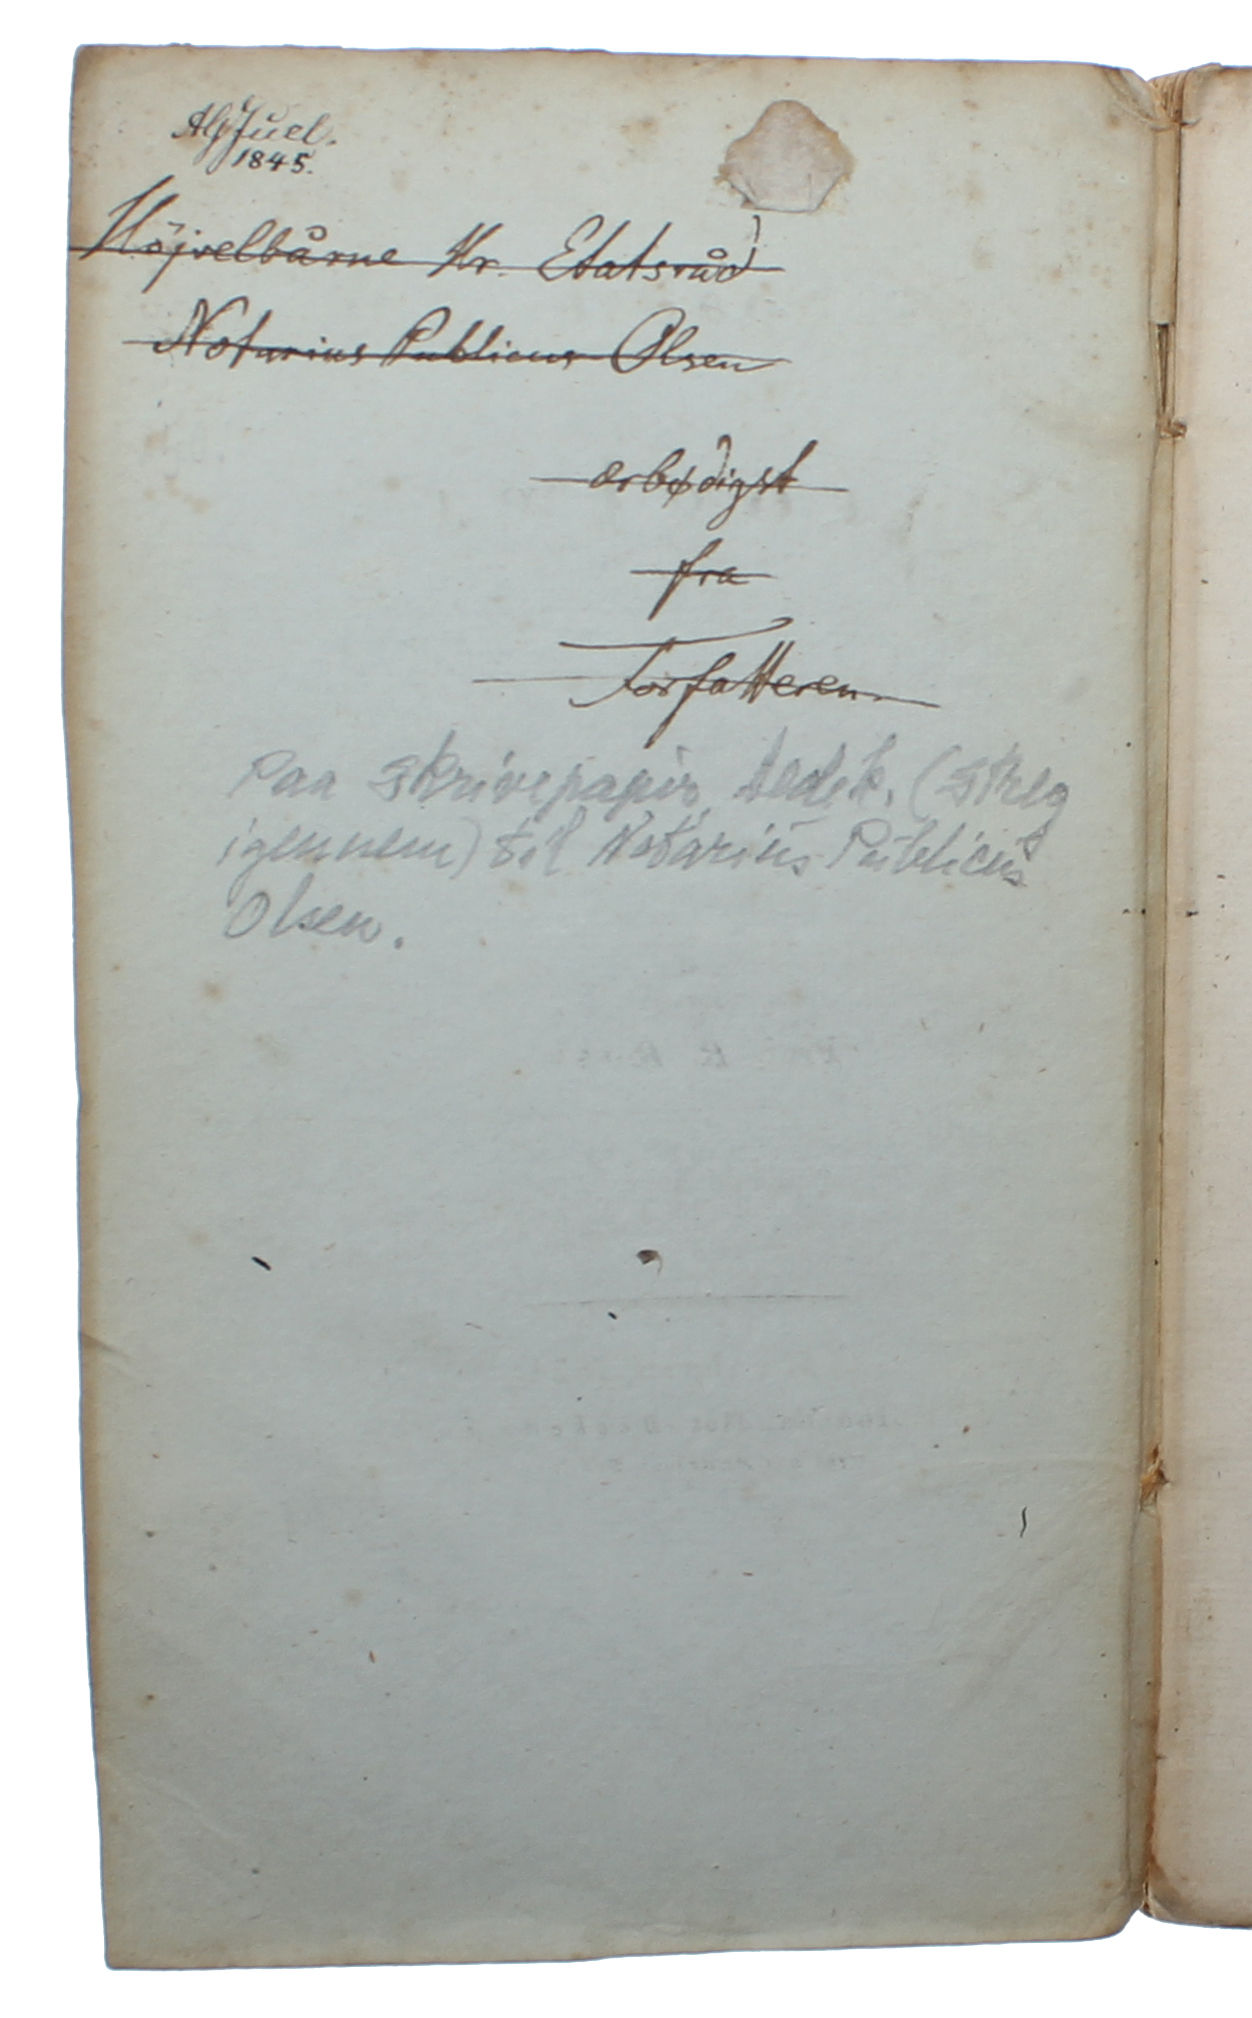 Juel.
1845.
Höjvelbårne Hr. Etatsråd
Notarius Publicus Olsen
ærbødigst
fra
Forfatteren.
Paa skrivepapir, dedik. (streg
igennem) til Notarius Publicus
Olsen.